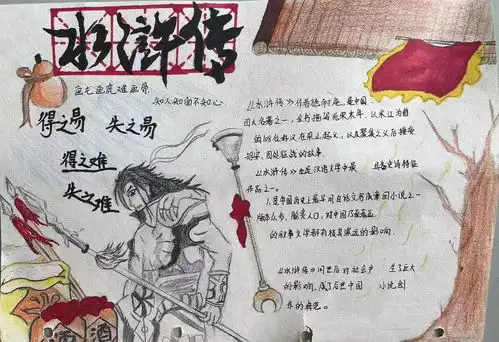 水浒传
画龙画虎难画骨
知人知面不知心
得之易
失之易
得之难
失之难
酒
酒
《水浒传》作者施耐庵,是中国
四大名著之一,全书描写北宋末年,以宋江为首
的108位好汉在梁山起义,以及聚义之后接受
招安,四处征战的故事
《水浒传》也是汉语文学中最 具备史诗特征
作品之一。
1.是中国历史上最早用白话文写成章回小说之一
版本众多,脍炙人口,对中国乃至
的叙事文学都有极其深远的影响
《水浒传》问世后对社会产生了巨大
的影响,成了后世中国 小说创
作的典范。